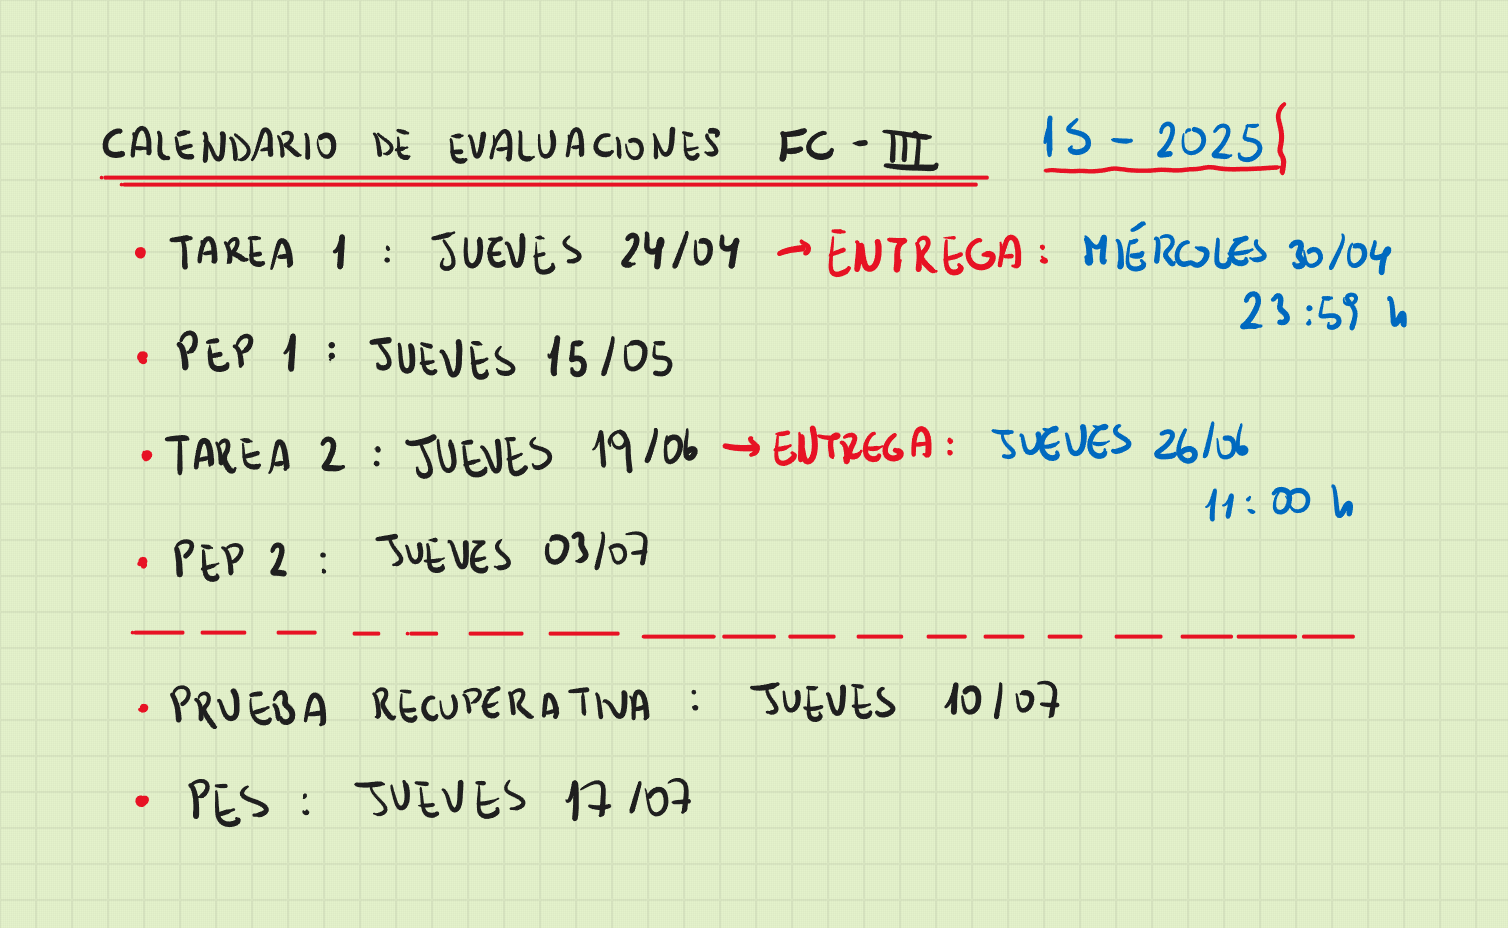 CALENDARIO DE EVALUACIONES FC - III 1S - 2025
• TAREA 1 : JUEVES 24/04 → ENTREGA : MIÉRCOLES 30/04
23:59 h
• PEP 1 : JUEVES 15/05
• TAREA 2 : JUEVES 19/06 → ENTREGA : JUEVES 26/06
11:00 h
• PEP 2 : JUEVES 03/07
• PRUEBA RECUPERATIVA : JUEVES 10/07
• PES : JUEVES 17/07